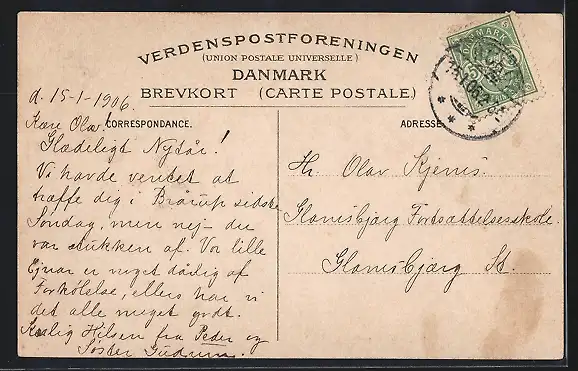 VERDENSPOSTFORENINGEN
(UNION POSTALE UNIVERSELLE)
DANMARK
BREVKORT (CARTE POSTALE.)
CORRESPONDANCE.
ADRESSE
DANMARK
5
d. 15-1-1906.
Kære Olav!
Glædeligt Nytår!
Vi havde ventet at
træffe dig i Brårup sidste
Søndag, men nej - du
var stukken af. Vor lille
Ejnar er meget dårlig af
Forkølelse, ellers har vi
det alle meget godt.
Kærlig Hilsen fra Peder og
Søster Gudrun.
Hr. Olav Kjems.
Glamsbjærg Fortsættelsesskole.
Glamsbjærg St.